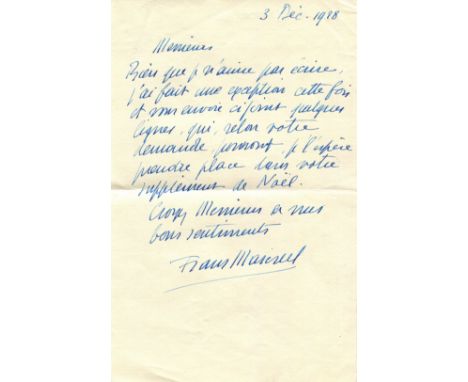 3 Déc. 1928
Messieurs
Bien que je n'aime pas écrire,
j'ai fait une exception cette fois
et vous envoie ci-joint quelques
lignes, qui, selon votre
demande, pourront je l'espère
prendre place dans votre
supplément de Noël.
Croyez Messieurs à mes
bons sentiments
Frans Masereel